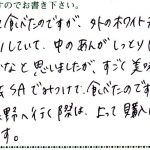 すのでお書き下さい。
食べたのですが、外のホワイト
していて、中のあんがしっとり
かなと思いましたが、すごく美
SAでみつけて、食べたのです
野へ行く際は、よって購入
す。